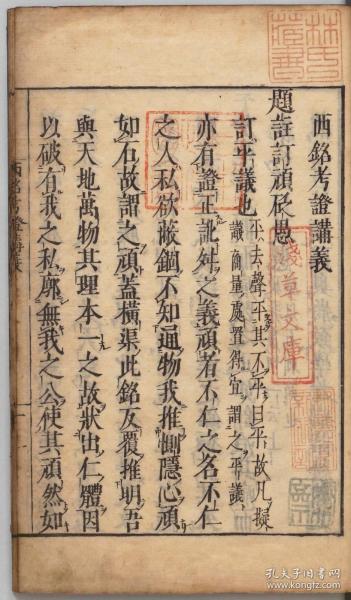 西銘考證講義
題註訂頑砭愚
訂平議也
平去聲平其不平曰平故凡擬
議商量處置得宜謂之平議
亦有證正訛舛之義頑者不仁之名不仁
之人私欲蔽錮不知通物我推惻隱心頑
如石故謂之頑蓋橫渠此銘反覆推明吾
與天地萬物其理本一之故狀出仁體因
以破有我之私廓無我之公使其頑然如
西銘考證講義
一
林氏藏書
淺草文庫
孔夫子旧书网